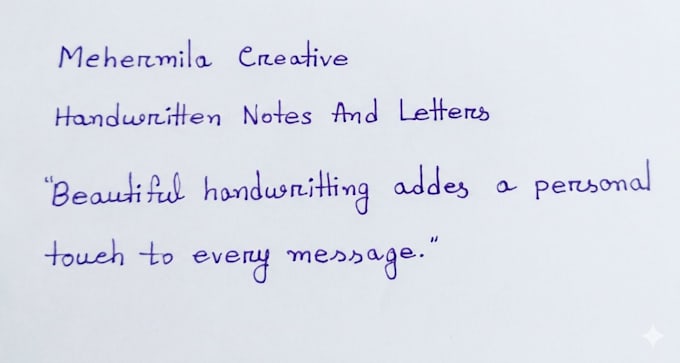 Mehermila Creative
Handwritten Notes And Letters
"Beautiful handwritting addes a personal
touch to every message."